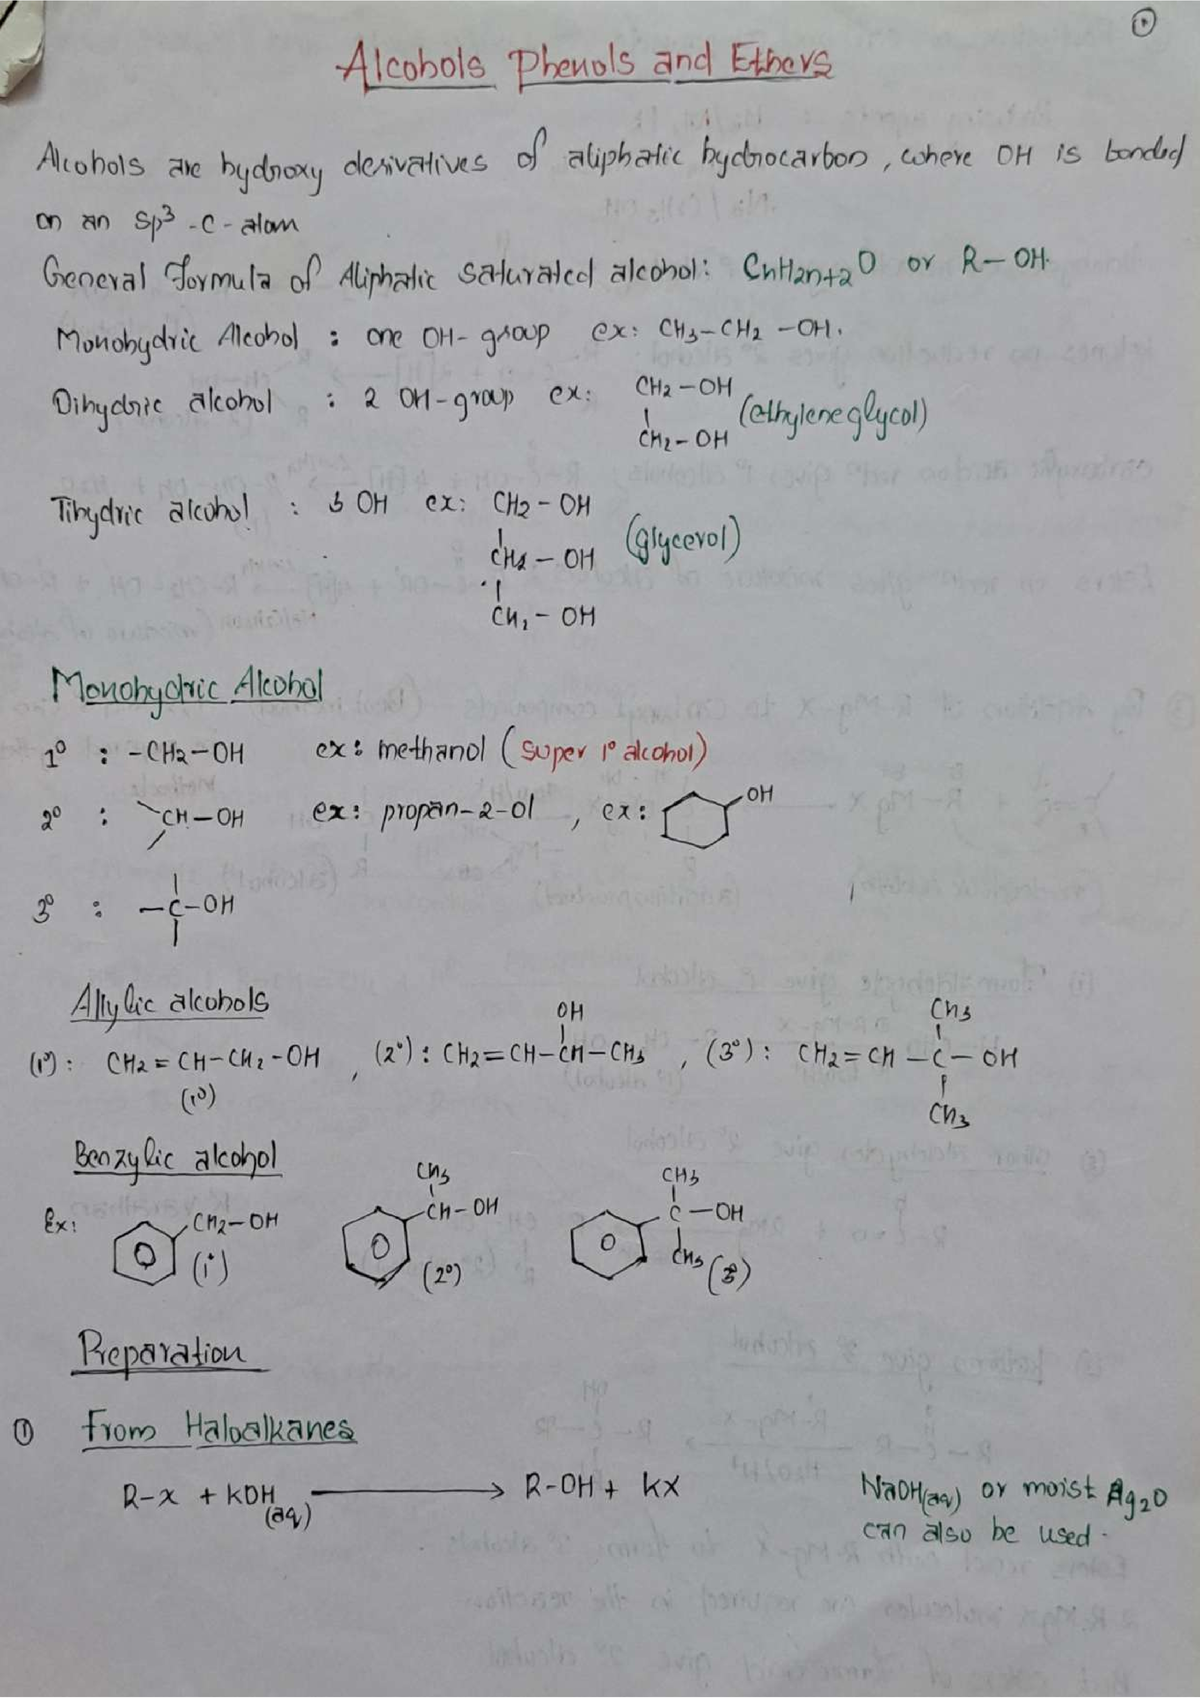 1
Alcohols Phenols and Ethers
Alcohols are hydroxy derivatives of aliphatic hydrocarbon, where OH is bonded
on an Sp³ -C- atom
General Formula of Aliphatic Saturated alcohol: CnH2n+2O or R-OH.
Monohydric Alcohol : one OH-group ex: CH3-CH2-OH.
Dihydric alcohol : 2 OH-group ex: CH2-OH
(ethylene glycol)
CH2-OH
Tihydric alcohol : 3 OH ex: CH2-OH
(glycerol)
CH2-OH
CH2-OH
Monohydric Alcohol
1° : -CH2-OH ex: methanol (super 1° alcohol)
2° : CH-OH ex: propan-2-ol, ex: OH
3° : -C-OH
Allylic alcohols
OH CH3
(1°): CH2=CH-CH2-OH, (2°): CH2=CH-CH-CH3, (3°): CH2=CH-C-OH
(1°) CH3
Benzylic alcohol
CH3 CH3
Ex: CH2-OH CH-OH C-OH
(1°) (2°) CH3 (3)
Preparation
① From Haloalkanes
R-X + KOH(aq) → R-OH + KX NaOH(aq) or moist Ag2O
can also be used.